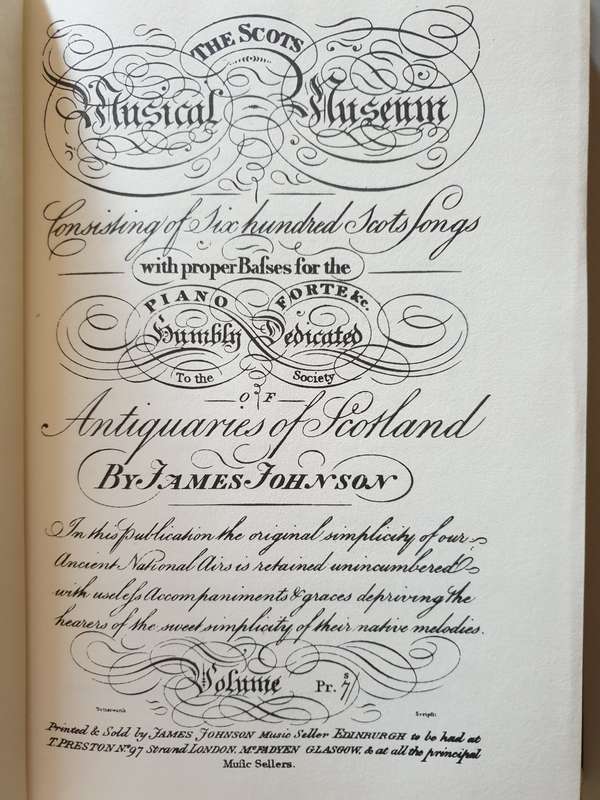 THE SCOTS
Musical Museum
Consisting of Six hundred Scots Songs
with proper Baſses for the
PIANO FORTE &c.
Humbly Dedicated
To the Society
OF
Antiquaries of Scotland
BY JAMES JOHNSON
In this publication the original simplicity of our
Ancient National Airs is retained unincumbered
with useleſs Accompaniments & graces depriving the
hearers of the sweet simplicity of their native melodies.
Volume Pr. 7/s
Butterworth Scripsit
Printed & Sold by JAMES JOHNSON Music Seller EDINBURGH to be had at
T. PRESTON No. 97 Strand LONDON, McFADYEN GLASGOW, & at all the principal
Muſic Sellers.